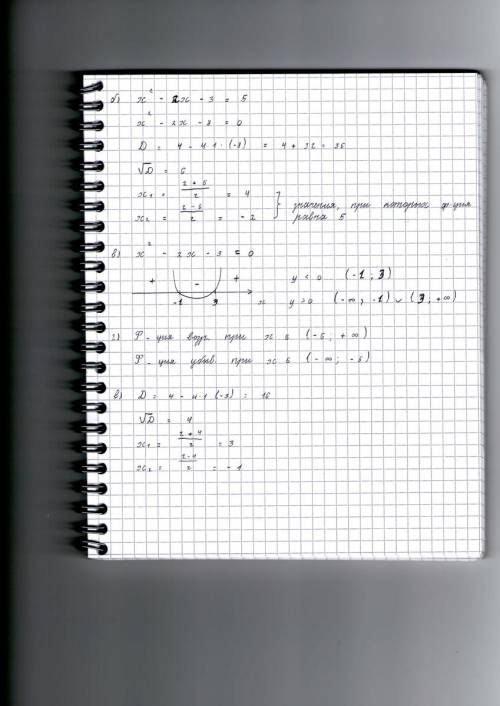 б) x² - 2x - 3 = 5
x² - 2x - 8 = 0
D = 4 - 4·1·(-8) = 4 + 32 = 36
√D = 6
x₁ = (2+6)/2 = 4
x₂ = (2-6)/2 = -2 } значения, при которых ф-ция равна 5
в) x² - 2x - 3 = 0
+ - + y < 0 (-1; 3)
-1 3 x y > 0 (-∞; -1) ∪ (3; +∞)
г) Ф-ция возр. при x ∈ (-5; +∞)
Ф-ция убыв. при x ∈ (-∞; -5)
в) D = 4 - 4·1·(-3) = 16
√D = 4
x₁ = (2+4)/2 = 3
x₂ = (2-4)/2 = -1